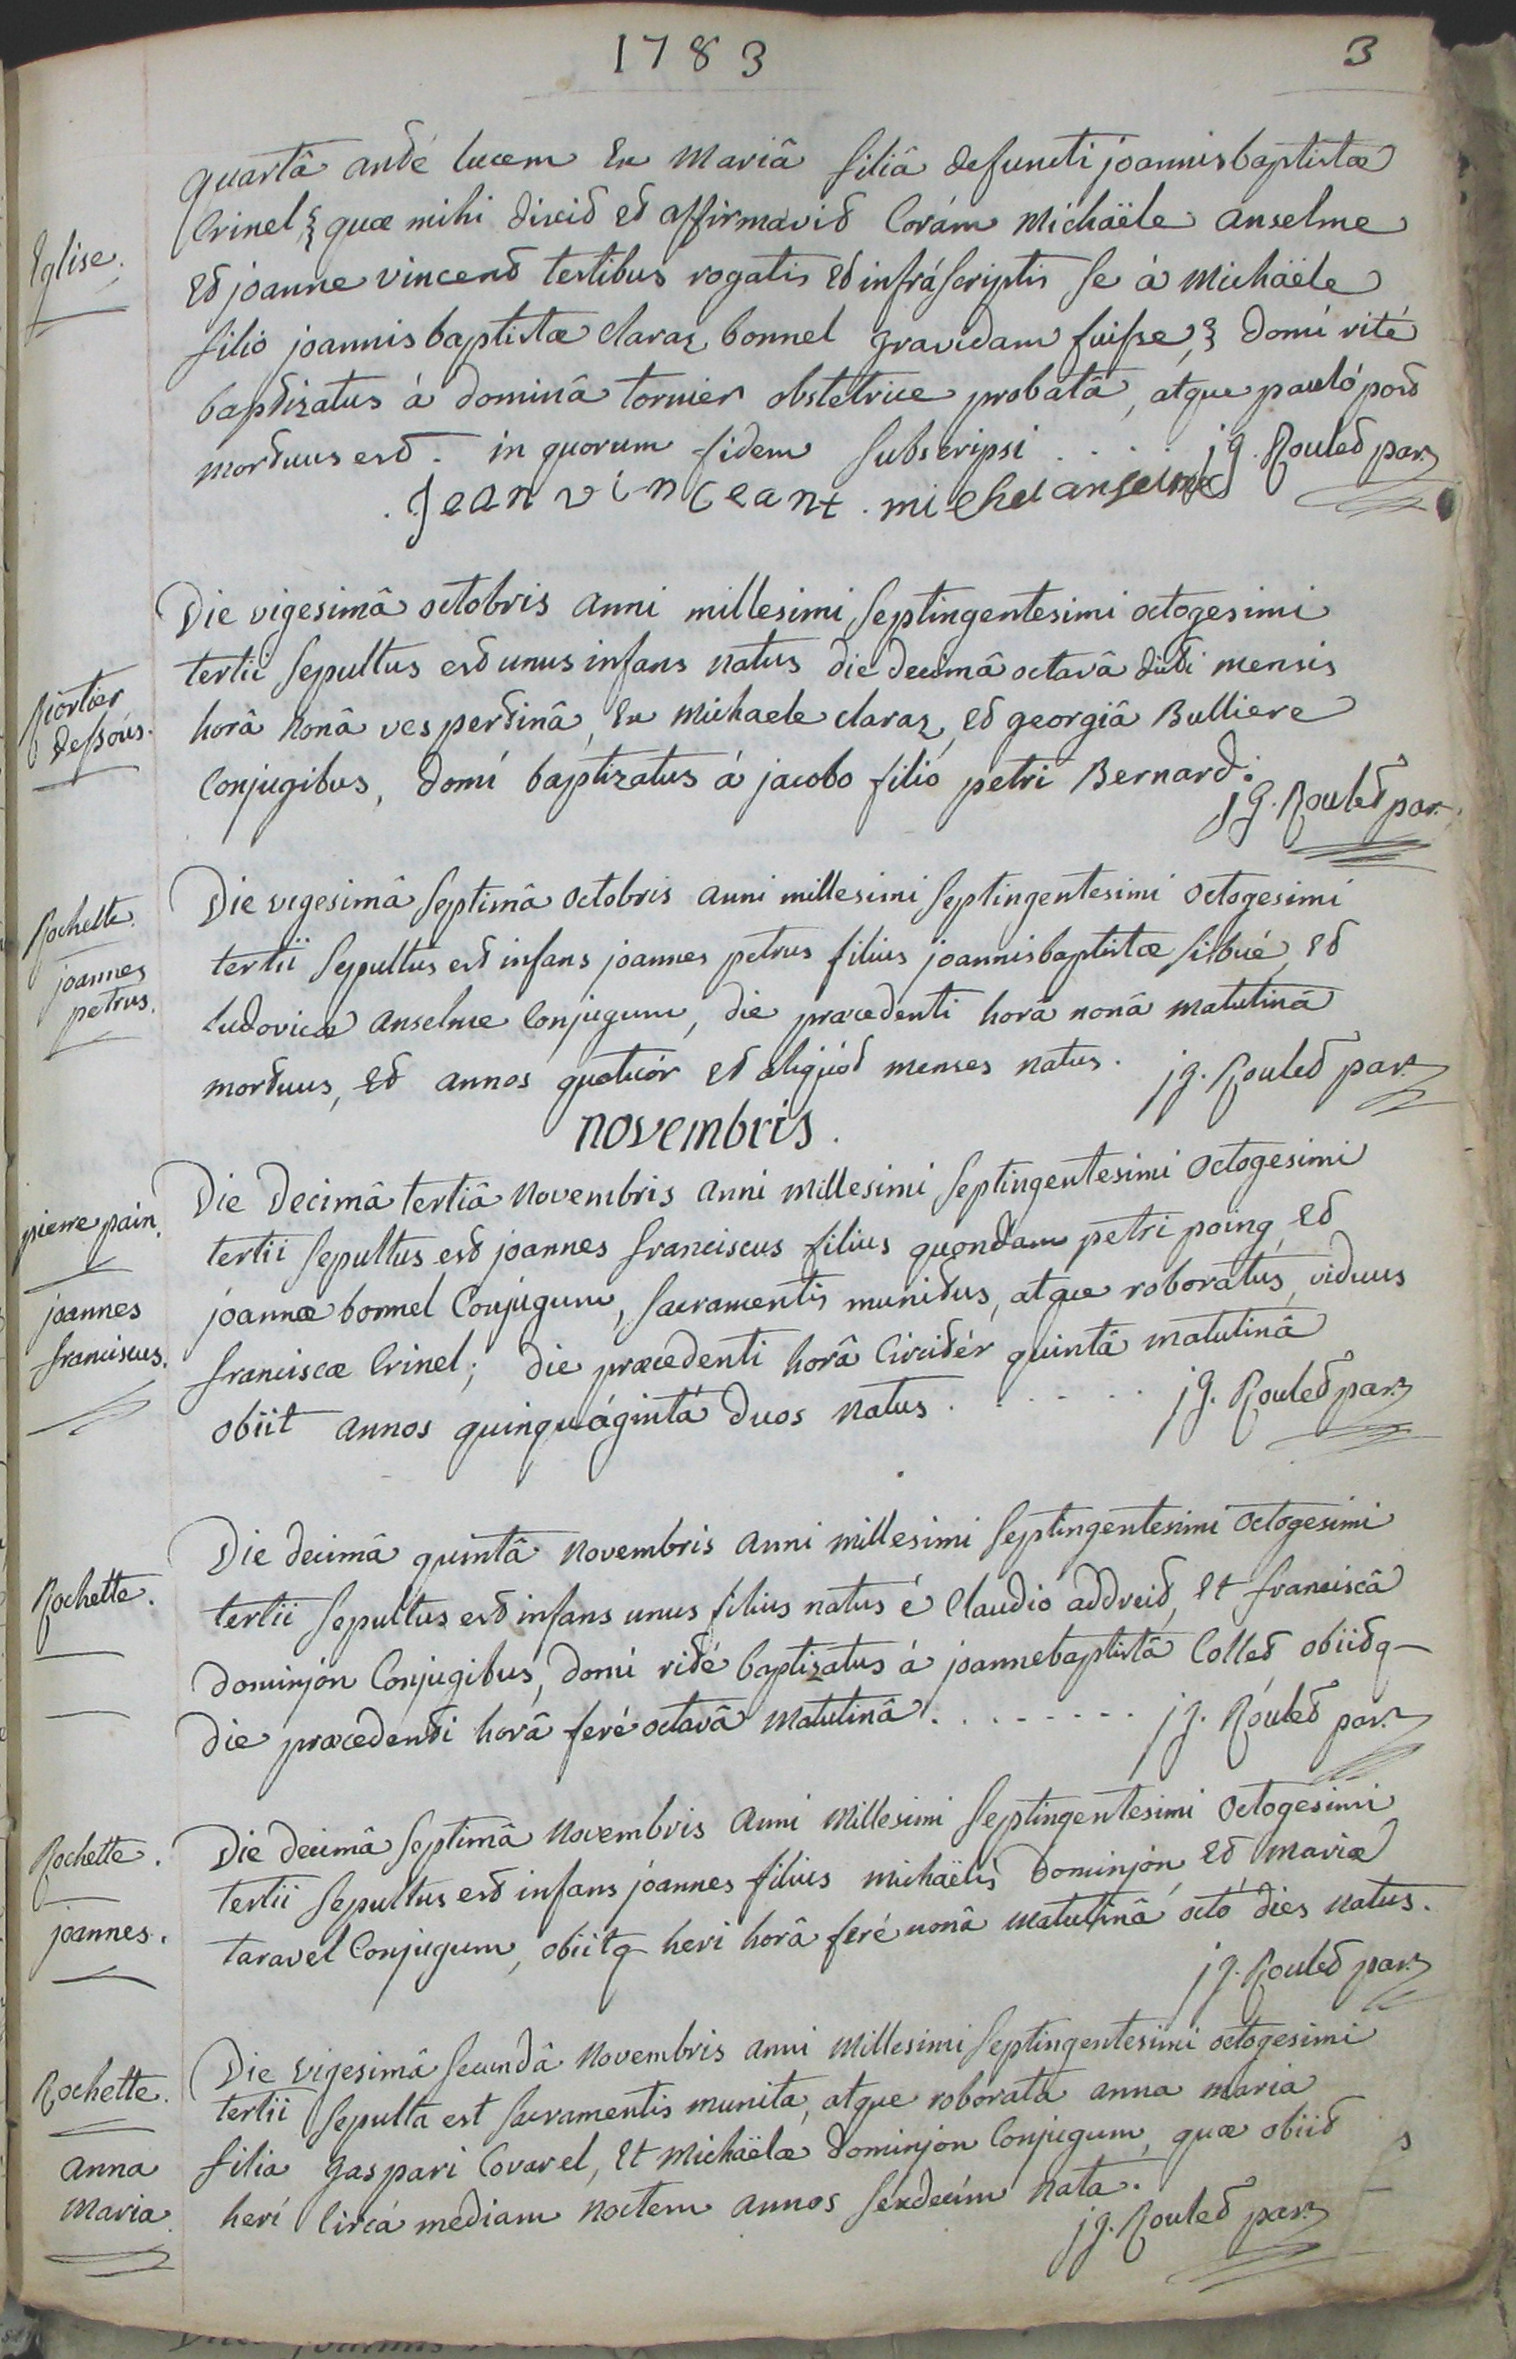 1783
3
quartâ anté lucem Ex Mariâ filiâ defuncti joannisbaptistæ
Crinel, & quæ mihi dixit et affirmavit Corám Michaële anselme
Eglise.
Et joanne vincent testibus rogatis et infráscriptis se à Michaële
filió joannisbaptistæ claraz bonnel gravidam fuisse, & domí rité
baptizatus á dominâ tornier obstetrice probatâ, atque pauló post
mortuus est. in quorum fidem subscripsi . . . . jg. Roulet par.
. Jean vinceant . michel anselme
Die vigesimâ octobris anni millesimi septingentesimi octogesimi
tertii sepultus est unus infans natus die decimâ octavâ dicti mensis
Mortier
dessous.
horâ nonâ vespertinâ, Ex Michaele claraz, et georgiâ Bulliere
Conjugibus, domí baptizatus á jacobo filió petri Bernard.
jg. Roulet par.
Die vigesimâ septimâ octobris anni millesimi septingentesimi octogesimi
Rochette.
tertii sepultus est infans joannes petrus filius joannisbaptistæ silvié, et
joannes
petrus.
ludovicæ anselme Conjugum, die præcedenti horâ nonâ matutinâ
mortuus, et annos quatuór et aliquód menses natus. jg. Roulet par.
novembris.
Die decimâ tertiâ novembris anni millesimi septingentesimi octogesimi
pierre pain.
tertii sepultus est joannes franciscus filius quondam petri poing, et
joannes
franciscus.
joannæ bonnel Conjugum, sacramentis munitus, atque roboratus, viduus
franciscæ Crinel; die præcedenti horâ Circitér quintâ matutinâ
obiit annos quinquáginta duos natus . . . . . jg. Roulet par.
Die decimâ quintâ novembris anni millesimi septingentesimi octogesimi
Rochette.
tertii sepultus est infans unus filius natus é Claudió addreit, et franciscâ
dominjon Conjugibus, domí rité baptizatus á joannebaptistâ Collet obiitq
die præcedenti horâ feré octavâ matutinâ . . . . . . . . jg. Roulet par.
Die decimâ septimâ novembris anni millesimi septingentesimi octogesimi
Rochette.
tertii sepultus est infans joannes filius michaëlis dominjon, et mariæ
joannes.
taravel Conjugum, obiitq heri horâ feré nonâ matutinâ octó dies natus.
jg. Roulet par.
Die vigesimâ secundâ novembris anni millesimi septingentesimi octogesimi
Rochette.
tertii sepulta est sacramentis munita, atque roborata anna maria
anna
maria.
filia gaspari Covarel, et Michaëlæ dominjon Conjugum, quæ obiit
herí Circá mediam noctem annos sexdecím nata.
jg. Roulet par.